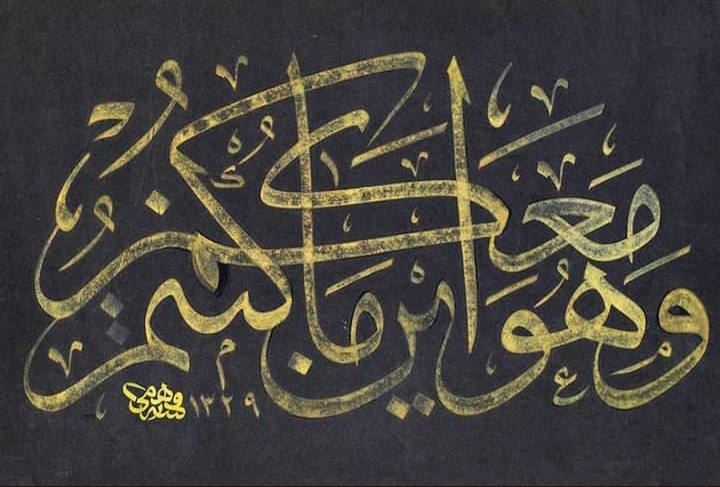 وَهُوَ مَعَكُمْ اَيْنَ مَا كُنْتُمْ
وهبي
١٣٢٩